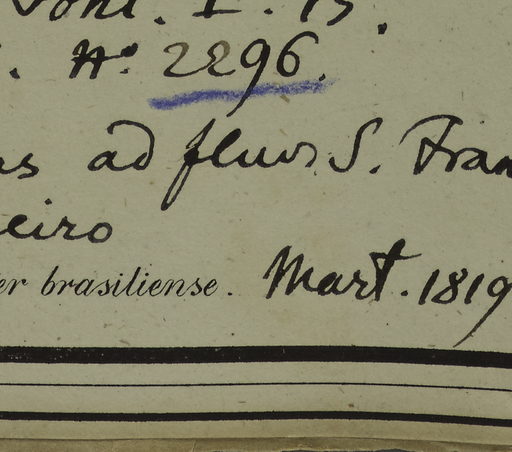 Pohl. I. 15.
. No. 2296.
as ad fluv. S. Fran
eiro
er brasiliense. Mart. 1819